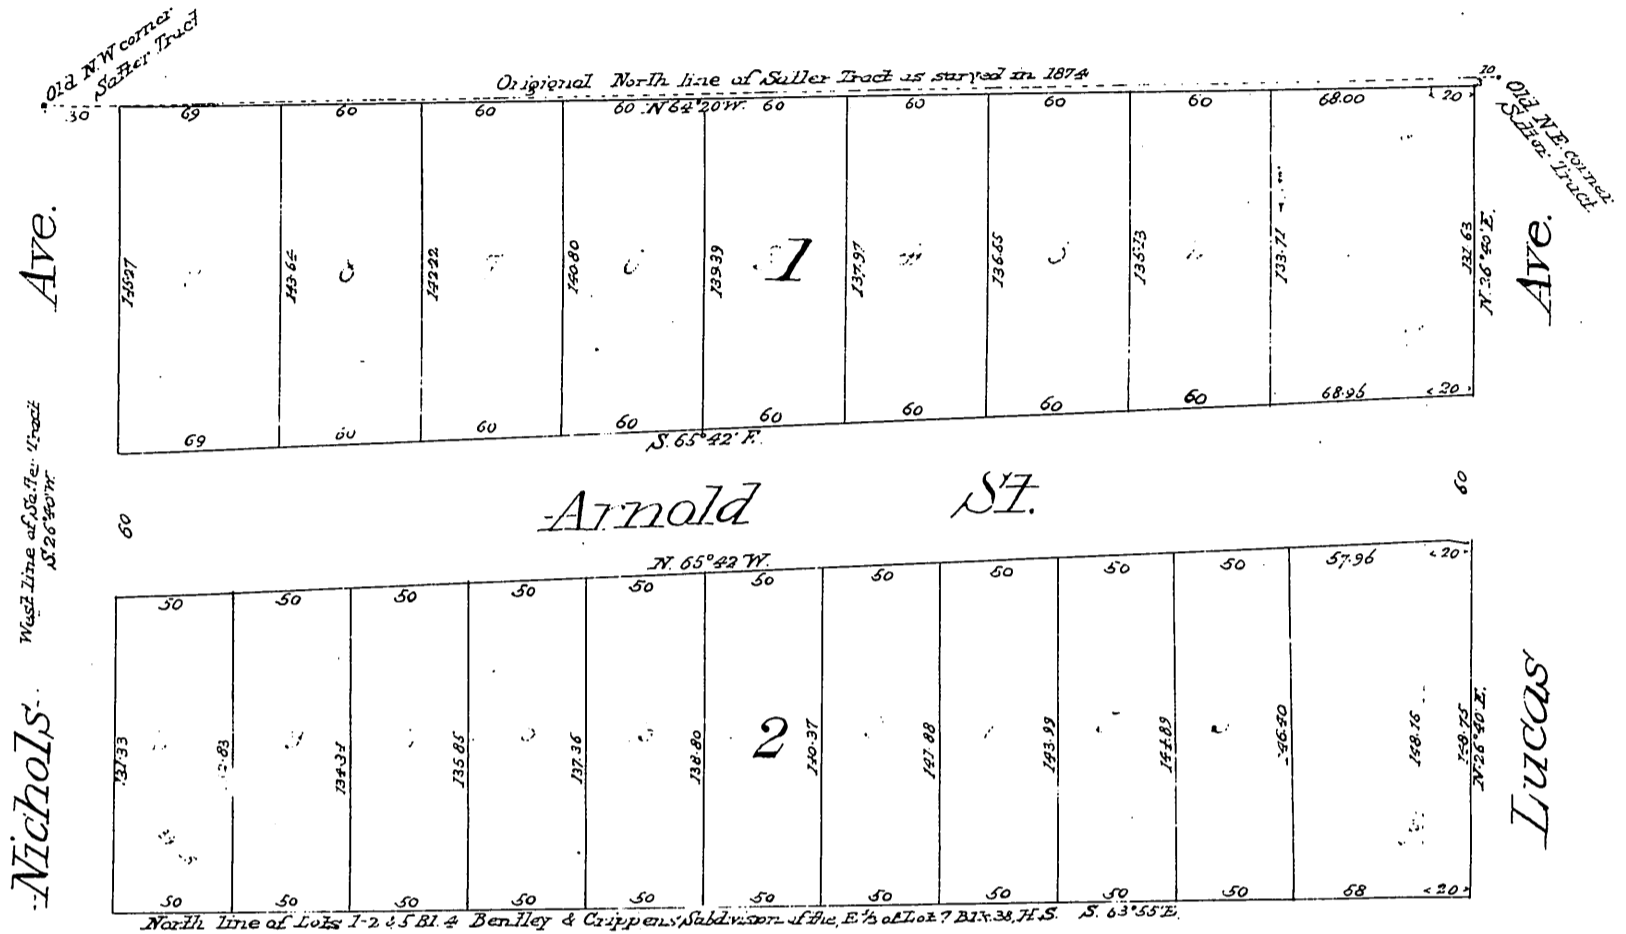 Old N.W corner
Satter Tract
Origional North line of Satter Tract as survyed in 1874
10
Old N.E. corner
Sattor Tract.
30
69
60
60
60
N 64°20'W.
60
60
60
60
68.00
20
143.64
142.22
140.80
139.39
137.97
136.55
133.71
131.63
N. 26°40'E.
Ave.
1
Ave.
69
60
60
60
60
60
60
60
68.96
20
S. 65°42' E.
West Line of Satter Tract
S. 26°40'W.
60
Arnold St.
60
N. 65°42 W.
50
50
50
50
50
50
50
50
50
50
57.96
20
131.33
134.34
135.85
137.36
138.80
2
140.37
141.88
143.99
144.89
146.40
148.16
148.75
N. 26°40' E.
Nichols
Lucas
50
50
50
50
50
50
50
50
50
50
58
20
North line of Lots 1-2 & 5 Bl. 4 Bentley & Crippens Subdvison of the E ⅓ of Lot 7 Blk. 38, H.S. S. 63°55'E.